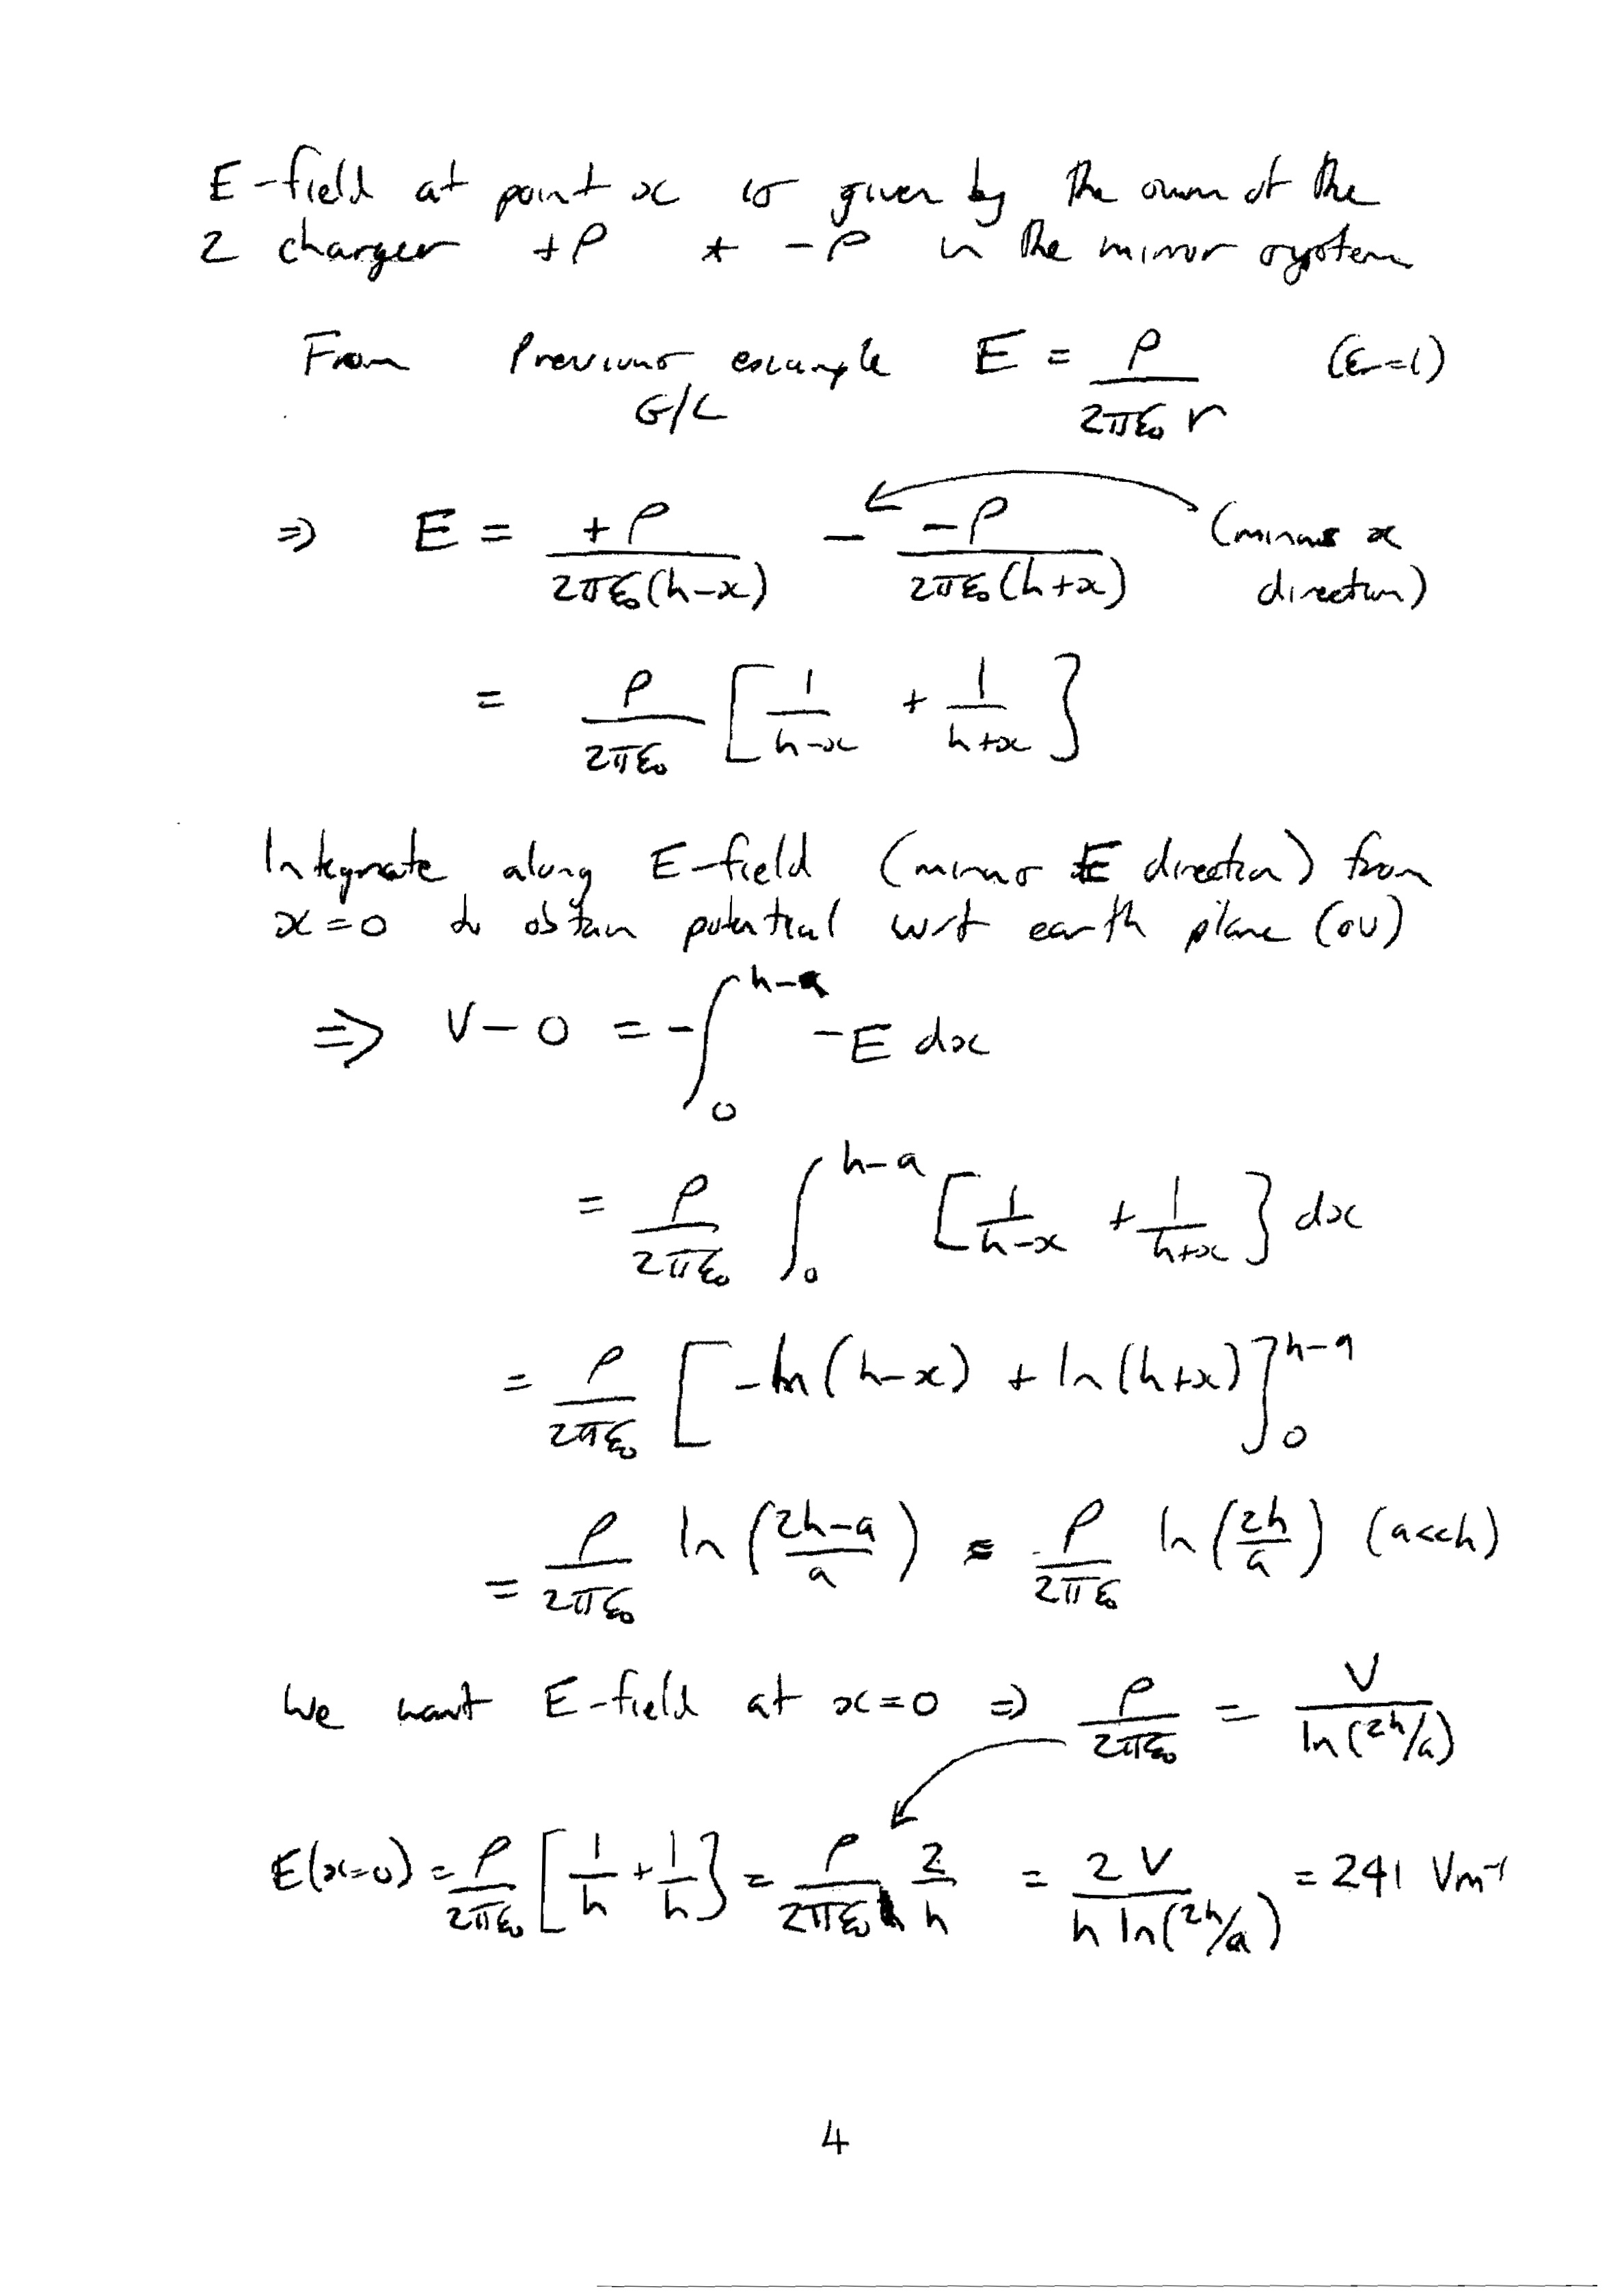 E-field at point x is given by the sum of the
2 charges +ρ + -ρ in the mirror system
From Previous example E = ρ / 2πε₀r (εr=1)
G/L
⇒ E = +ρ / 2πε₀(h-x) - -ρ / 2πε₀(h+x) (minus x
direction)
= ρ / 2πε₀ [1/h-x + 1/h+x]
Integrate along E-field (minus E direction) from
x=0 to obtain potential wrt earth plane (0V)
⇒ V-0 = -∫₀^h-a -E dx
= ρ / 2πε₀ ∫₀^h-a [1/h-x + 1/h+x] dx
= ρ / 2πε₀ [-ln(h-x) + ln(h+x)]₀^h-a
= ρ / 2πε₀ ln(2h-a / a) ≈ ρ / 2πε₀ ln(2h/a) (a<<h)
We want E-field at x=0 ⇒ ρ / 2πε₀ = V / ln(2h/a)
E(x=0) = ρ / 2πε₀ [1/h + 1/h] = ρ / 2πε₀ 2/h = 2V / h ln(2h/a) = 241 Vm⁻¹
4